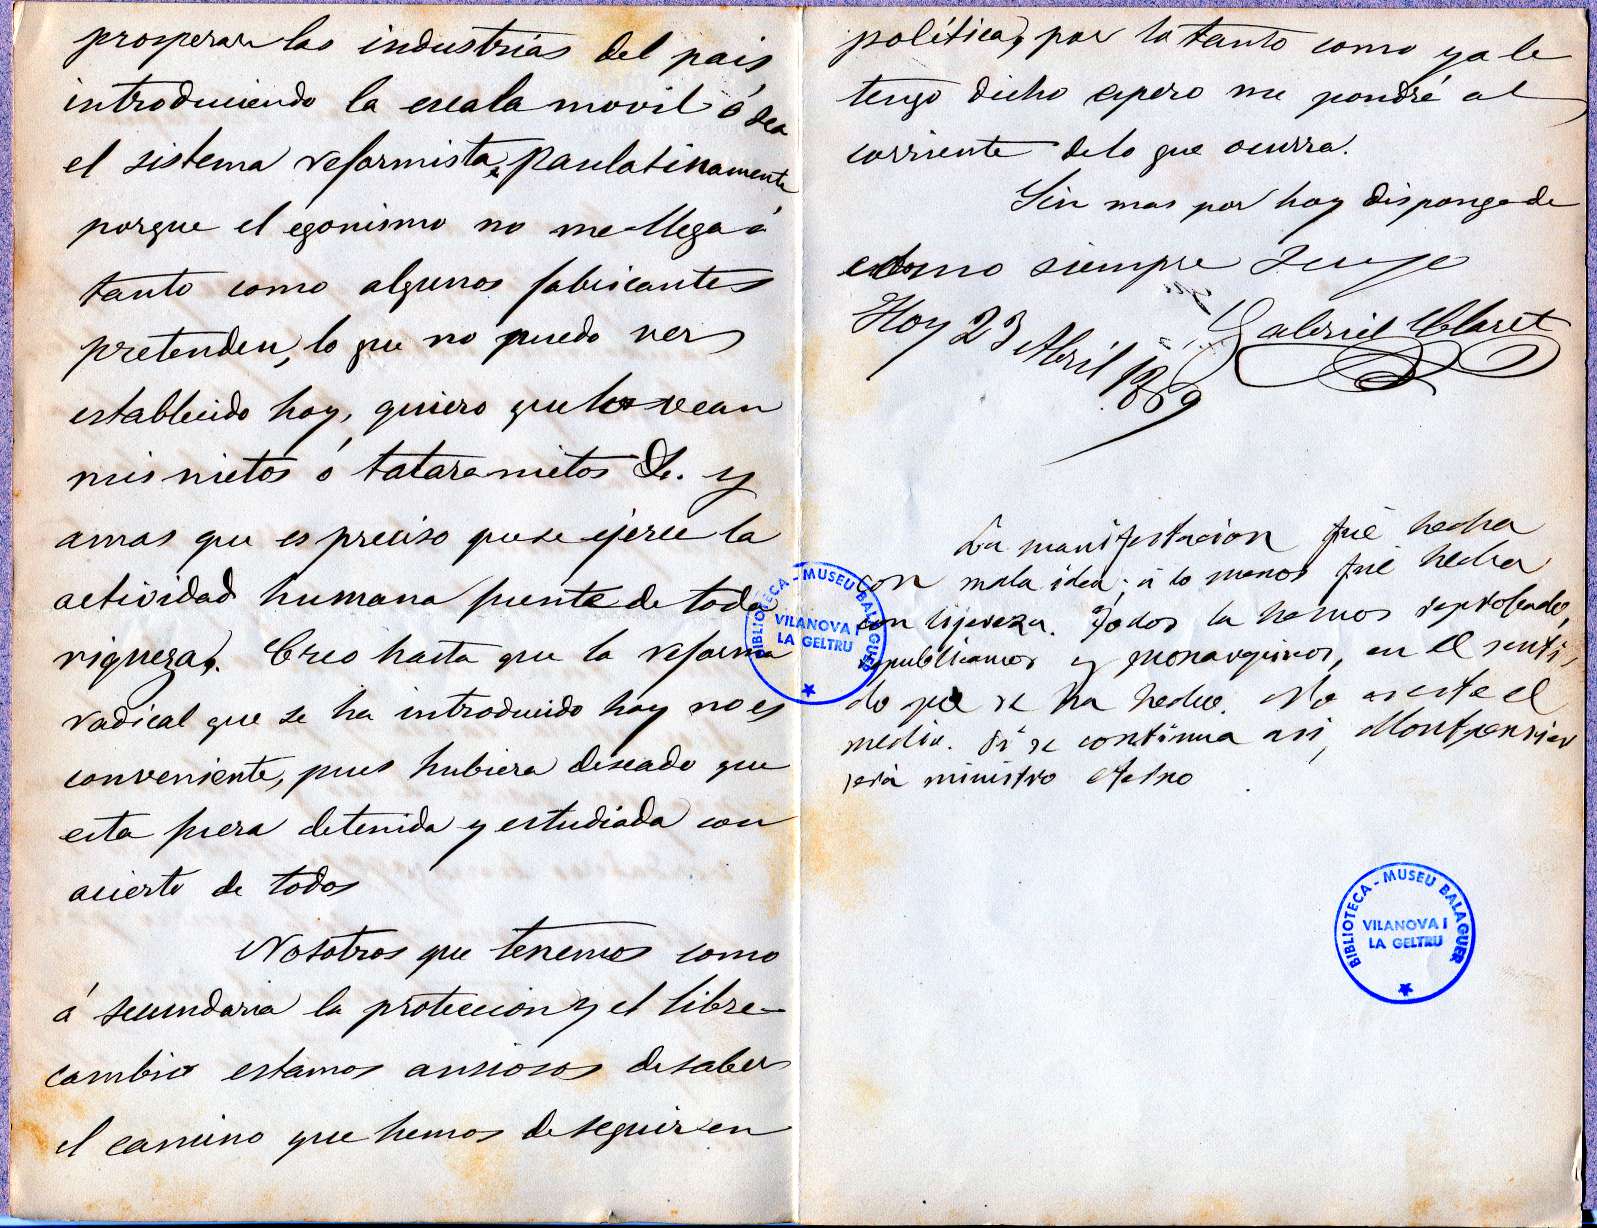 prosperar las industrias del pais
introduciendo la escala movil ó sea
el sistema reformista, paulatinamente
porque el egonismo no me llega á
tanto como algunos fabricantes
pretenden, lo que no puedo ver
establecido hoy, quiero que lo vean
mis nietos ó tataranietos &. y
amas que es preciso que se ejerce la
actividad humana fuente de toda
riqueza. Creo hasta que la reforma
radical que se ha introducido hoy no es
conveniente, pues hubiera deseado que
esta fuera detenida y estudiada con
acierto de todos
Nosotros que tenemos como
á secundaria la proteccion y el libre-
cambio estamos ansiosos de saber
el camino que hemos de seguir en
politica, por lo tanto como ya le
tengo dicho espero me pondré al
corriente de lo que ocurra.
Sin mas por hoy disponga de
como siempre suyo
Gabriel Claret
Hoy 23 Abril 1869
La manifestacion fué hecha
con mala idea; á lo menos fué hecha
con lijereza. Todos la hemos reprobado,
republicanos y monarquicos, en el senti-
do que se ha hecho. No es este el
medio. Si se continua asi, Montpensier
será ministro
BIBLIOTECA - MUSEU BALAGUER
VILANOVA I
LA GELTRU
BIBLIOTECA - MUSEU BALAGUER
VILANOVA I
LA GELTRU